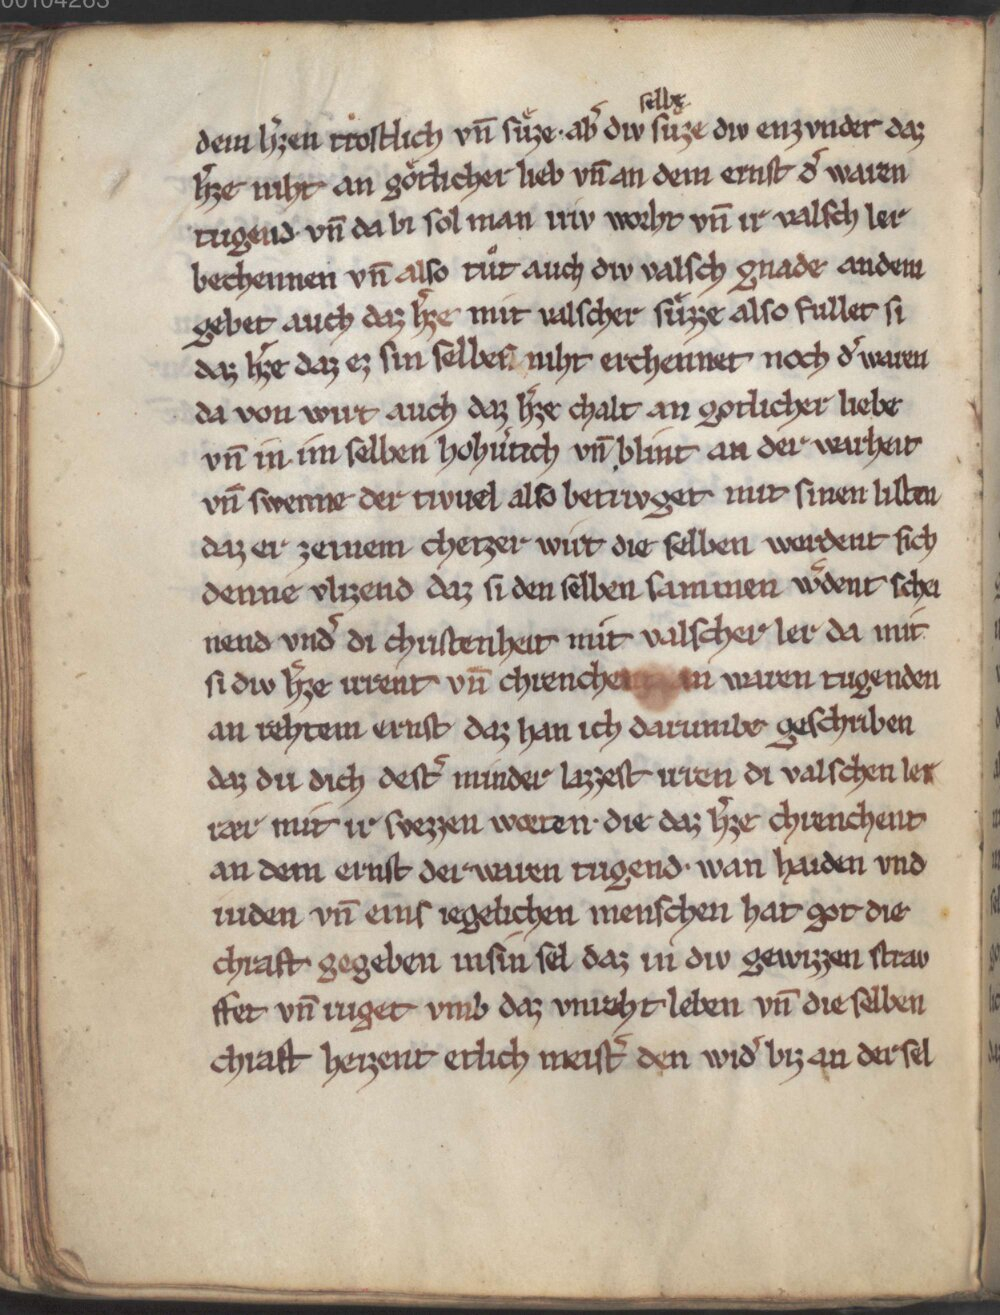 00104263
selbe
dem h̾zen trostlich vn̄ sůze · ab̾ diw sůze diw enzvnder daz
h̾ze niht an gotlicher lieb vn̄ an dem ernst d̾ waren
tugend · vn̄ da bi sol man iriv worht vn̄ ir valsch ler
bechennen vn̄ also tůt auch diw valsch gnade an dem
gebet auch daz h̾ze mit valscher sůzze also fullet si
daz h̾ze daz ez sin selbes niht erchennet noch d̾ waren
da von wirt auch daz h̾ze chalt an gotlicher liebe
vn̄ in im selben hohv̾tich vn̄ blint an der warheit
vn̄ swenne der tivuel also betrivget mit sinen listen
daz er zeinem chetzer wirt die selben werdent sich
denne vlizend daz si den selben sammen w̾dent schei
nend vnd̾ di christenheit mit valscher ler da mit
si diw h̾ze irrent vn̄ chrenchent an waren tugenden
an rehtem ernst daz han ich darumbe geschriben
daz du dich dest̾ minder lazzest irren di valschen ler
rær mit ir svezzen worten · die daz h̾ze chrenchent
an dem ernst der waren tugend · wan haiden vnd
iuden vn̄ eins iegelichen menschen hat got die
chraft gegeben in sin sel daz in diw gewizzen straw
ffet vn̄ ruget vmb daz vnreht leben vn̄ die selben
chraft heizent etlich meist̾ den wid̾ biz an der sel